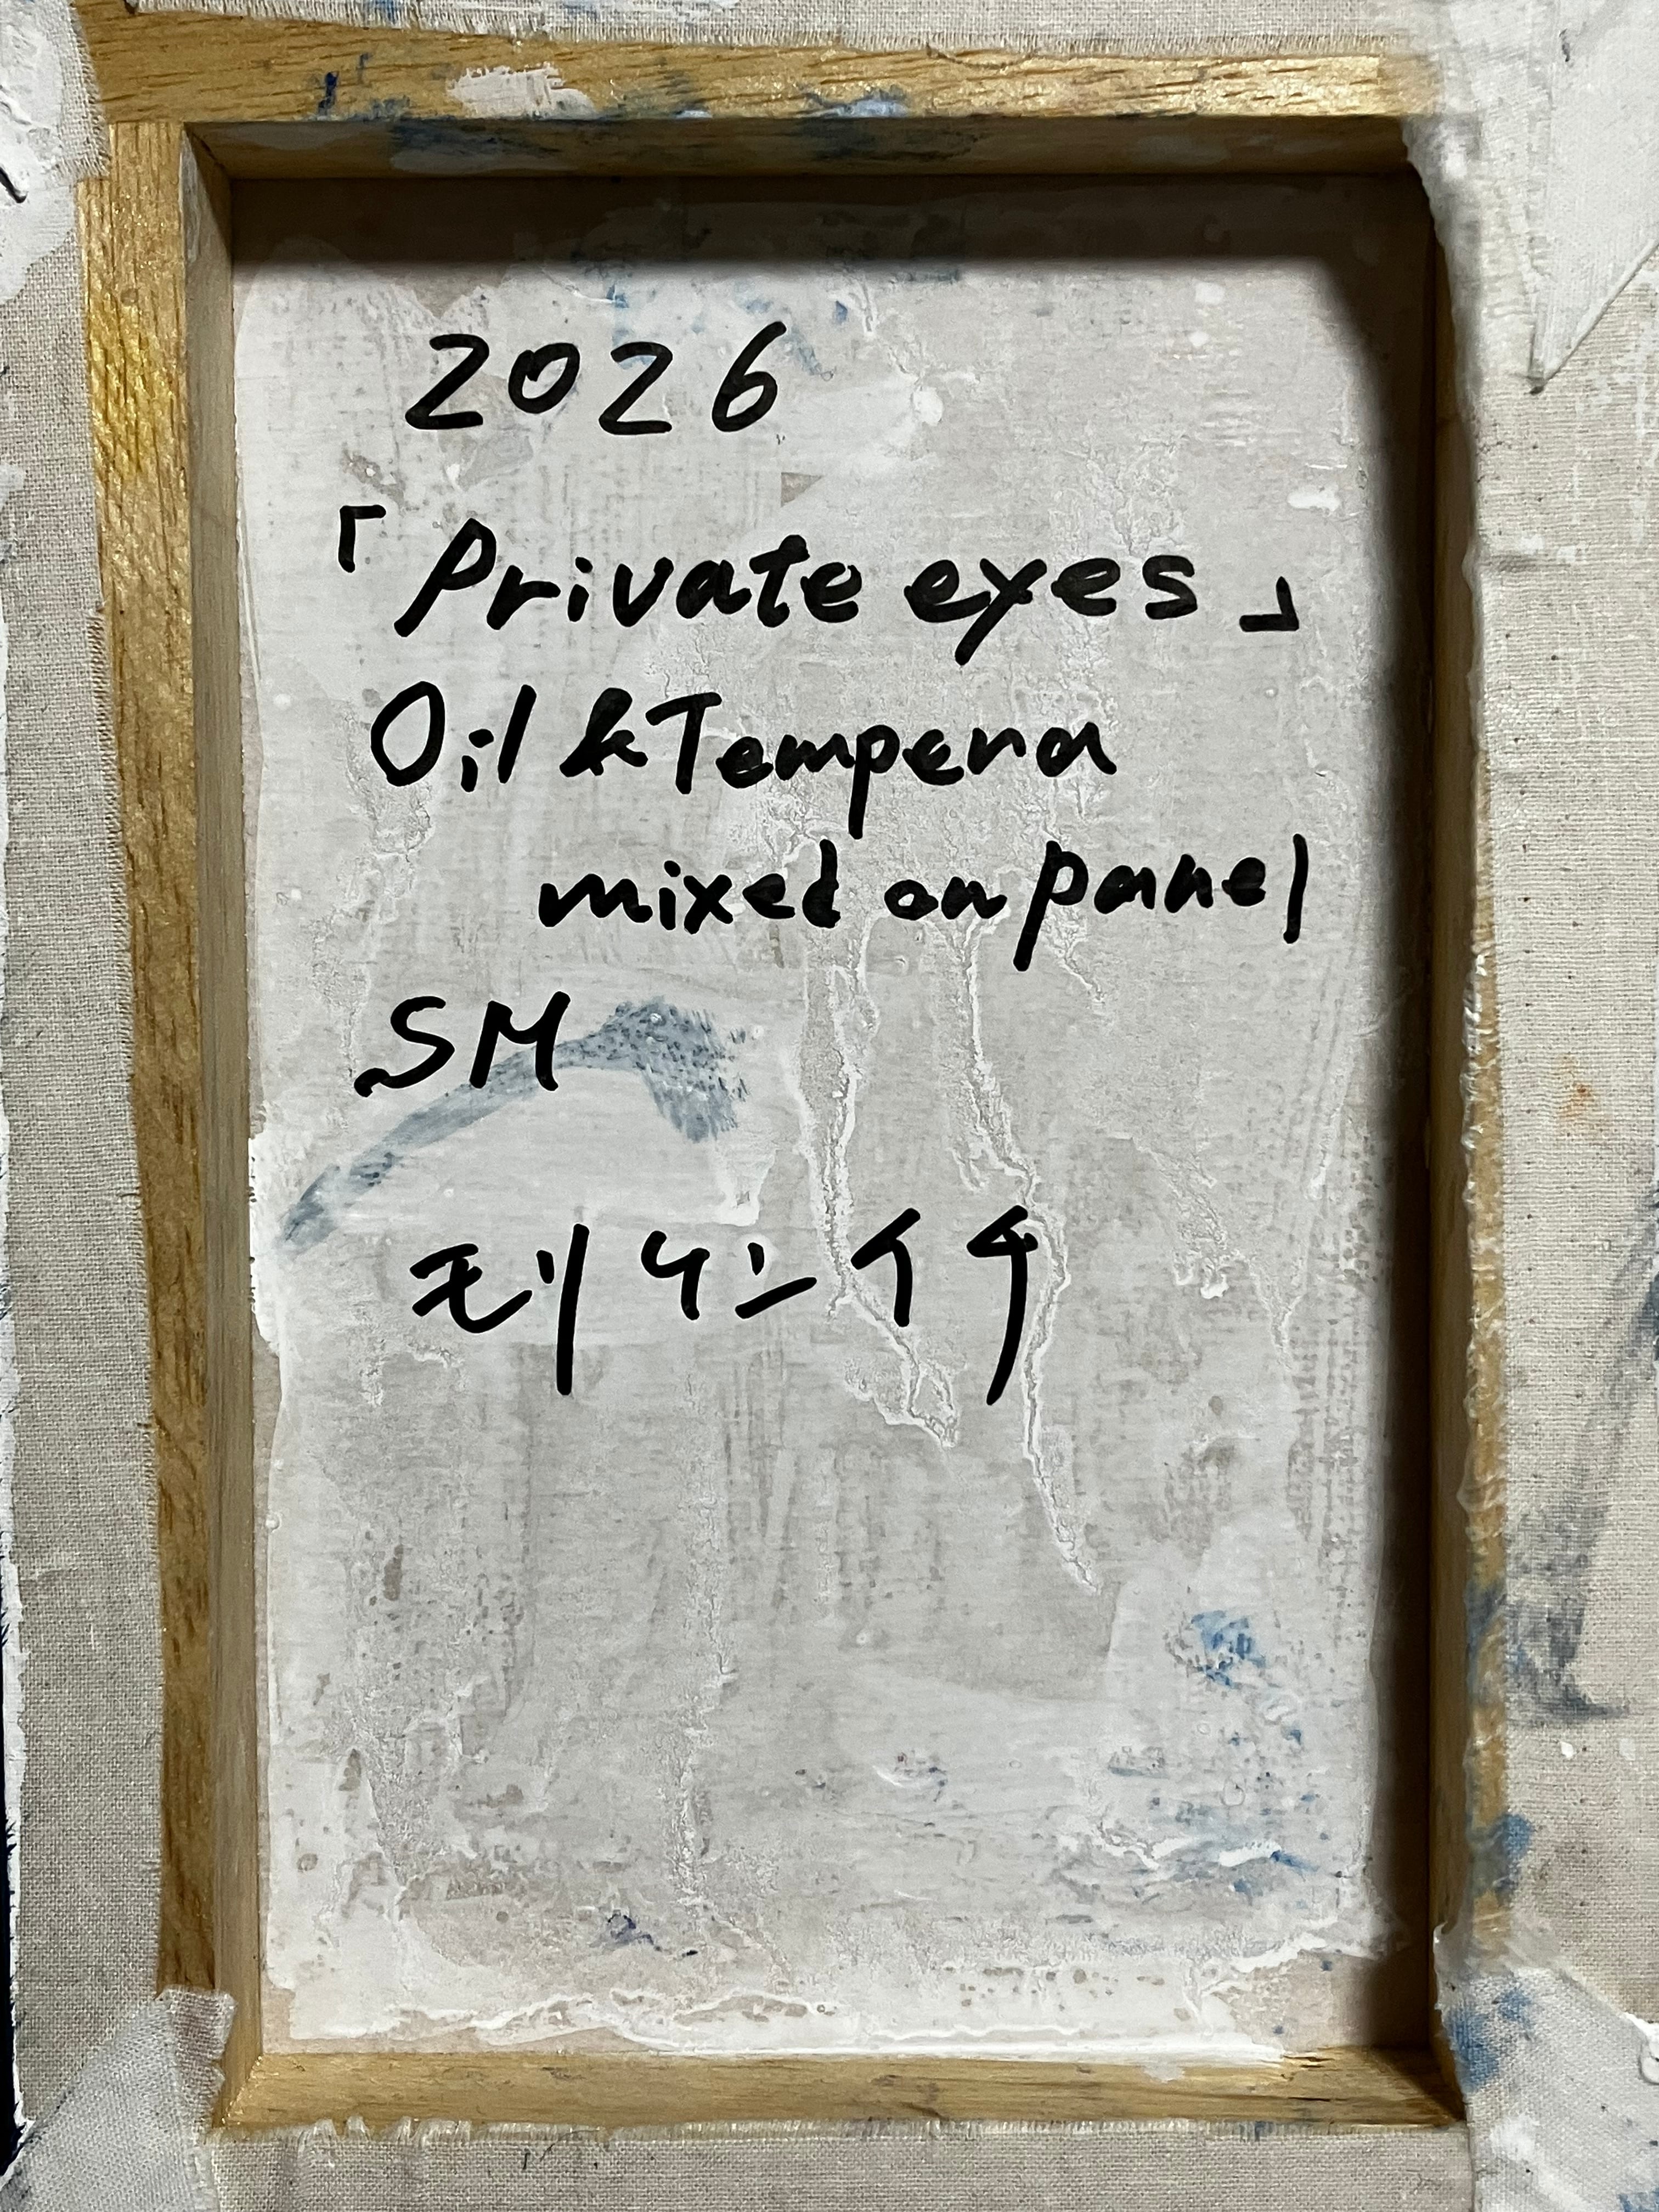 2026
「Private eyes」
Oil & Tempera
mixed on pannel
SM
モリケンイチ